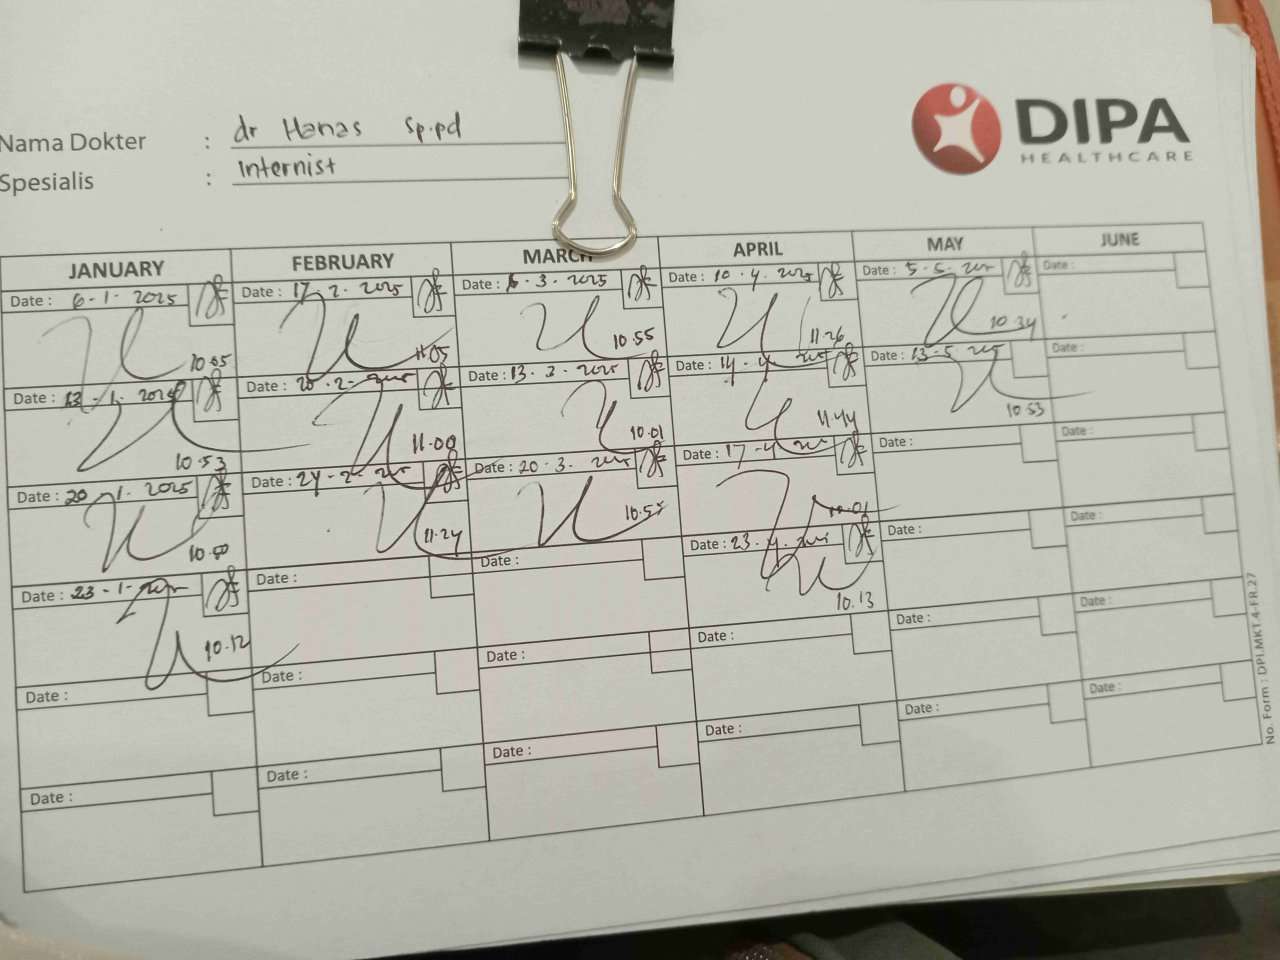 Nama Dokter : dr Hanas Sp.pd
Spesialis : Internist
DIPA
HEALTHCARE
JANUARY FEBRUARY MARCH APRIL MAY JUNE
Date : 6-1-2025 Date : 17-2-2025 Date : 6-3-2025 Date : 10-4-2025 Date : 5-5- Date :
10.55 11.05 10.55 11.26 10.34
Date : 13-1-2025 Date : 20-2- Date : 13-3-2025 Date : 14-4- Date : 13-5- Date :
10.53 11.00 10.01 11.44 10.53
Date : 20-1-2025 Date : 24-2- Date : 20-3- Date : 17-4- Date : Date :
10.50 11.24 10.01
Date : 23-1- Date : Date : Date : 23-4- Date : Date :
10.12 10.13
Date : Date : Date : Date : Date : Date :
Date : Date : Date : Date : Date : Date :
No. Form : DPI.MKT.4-FR.27